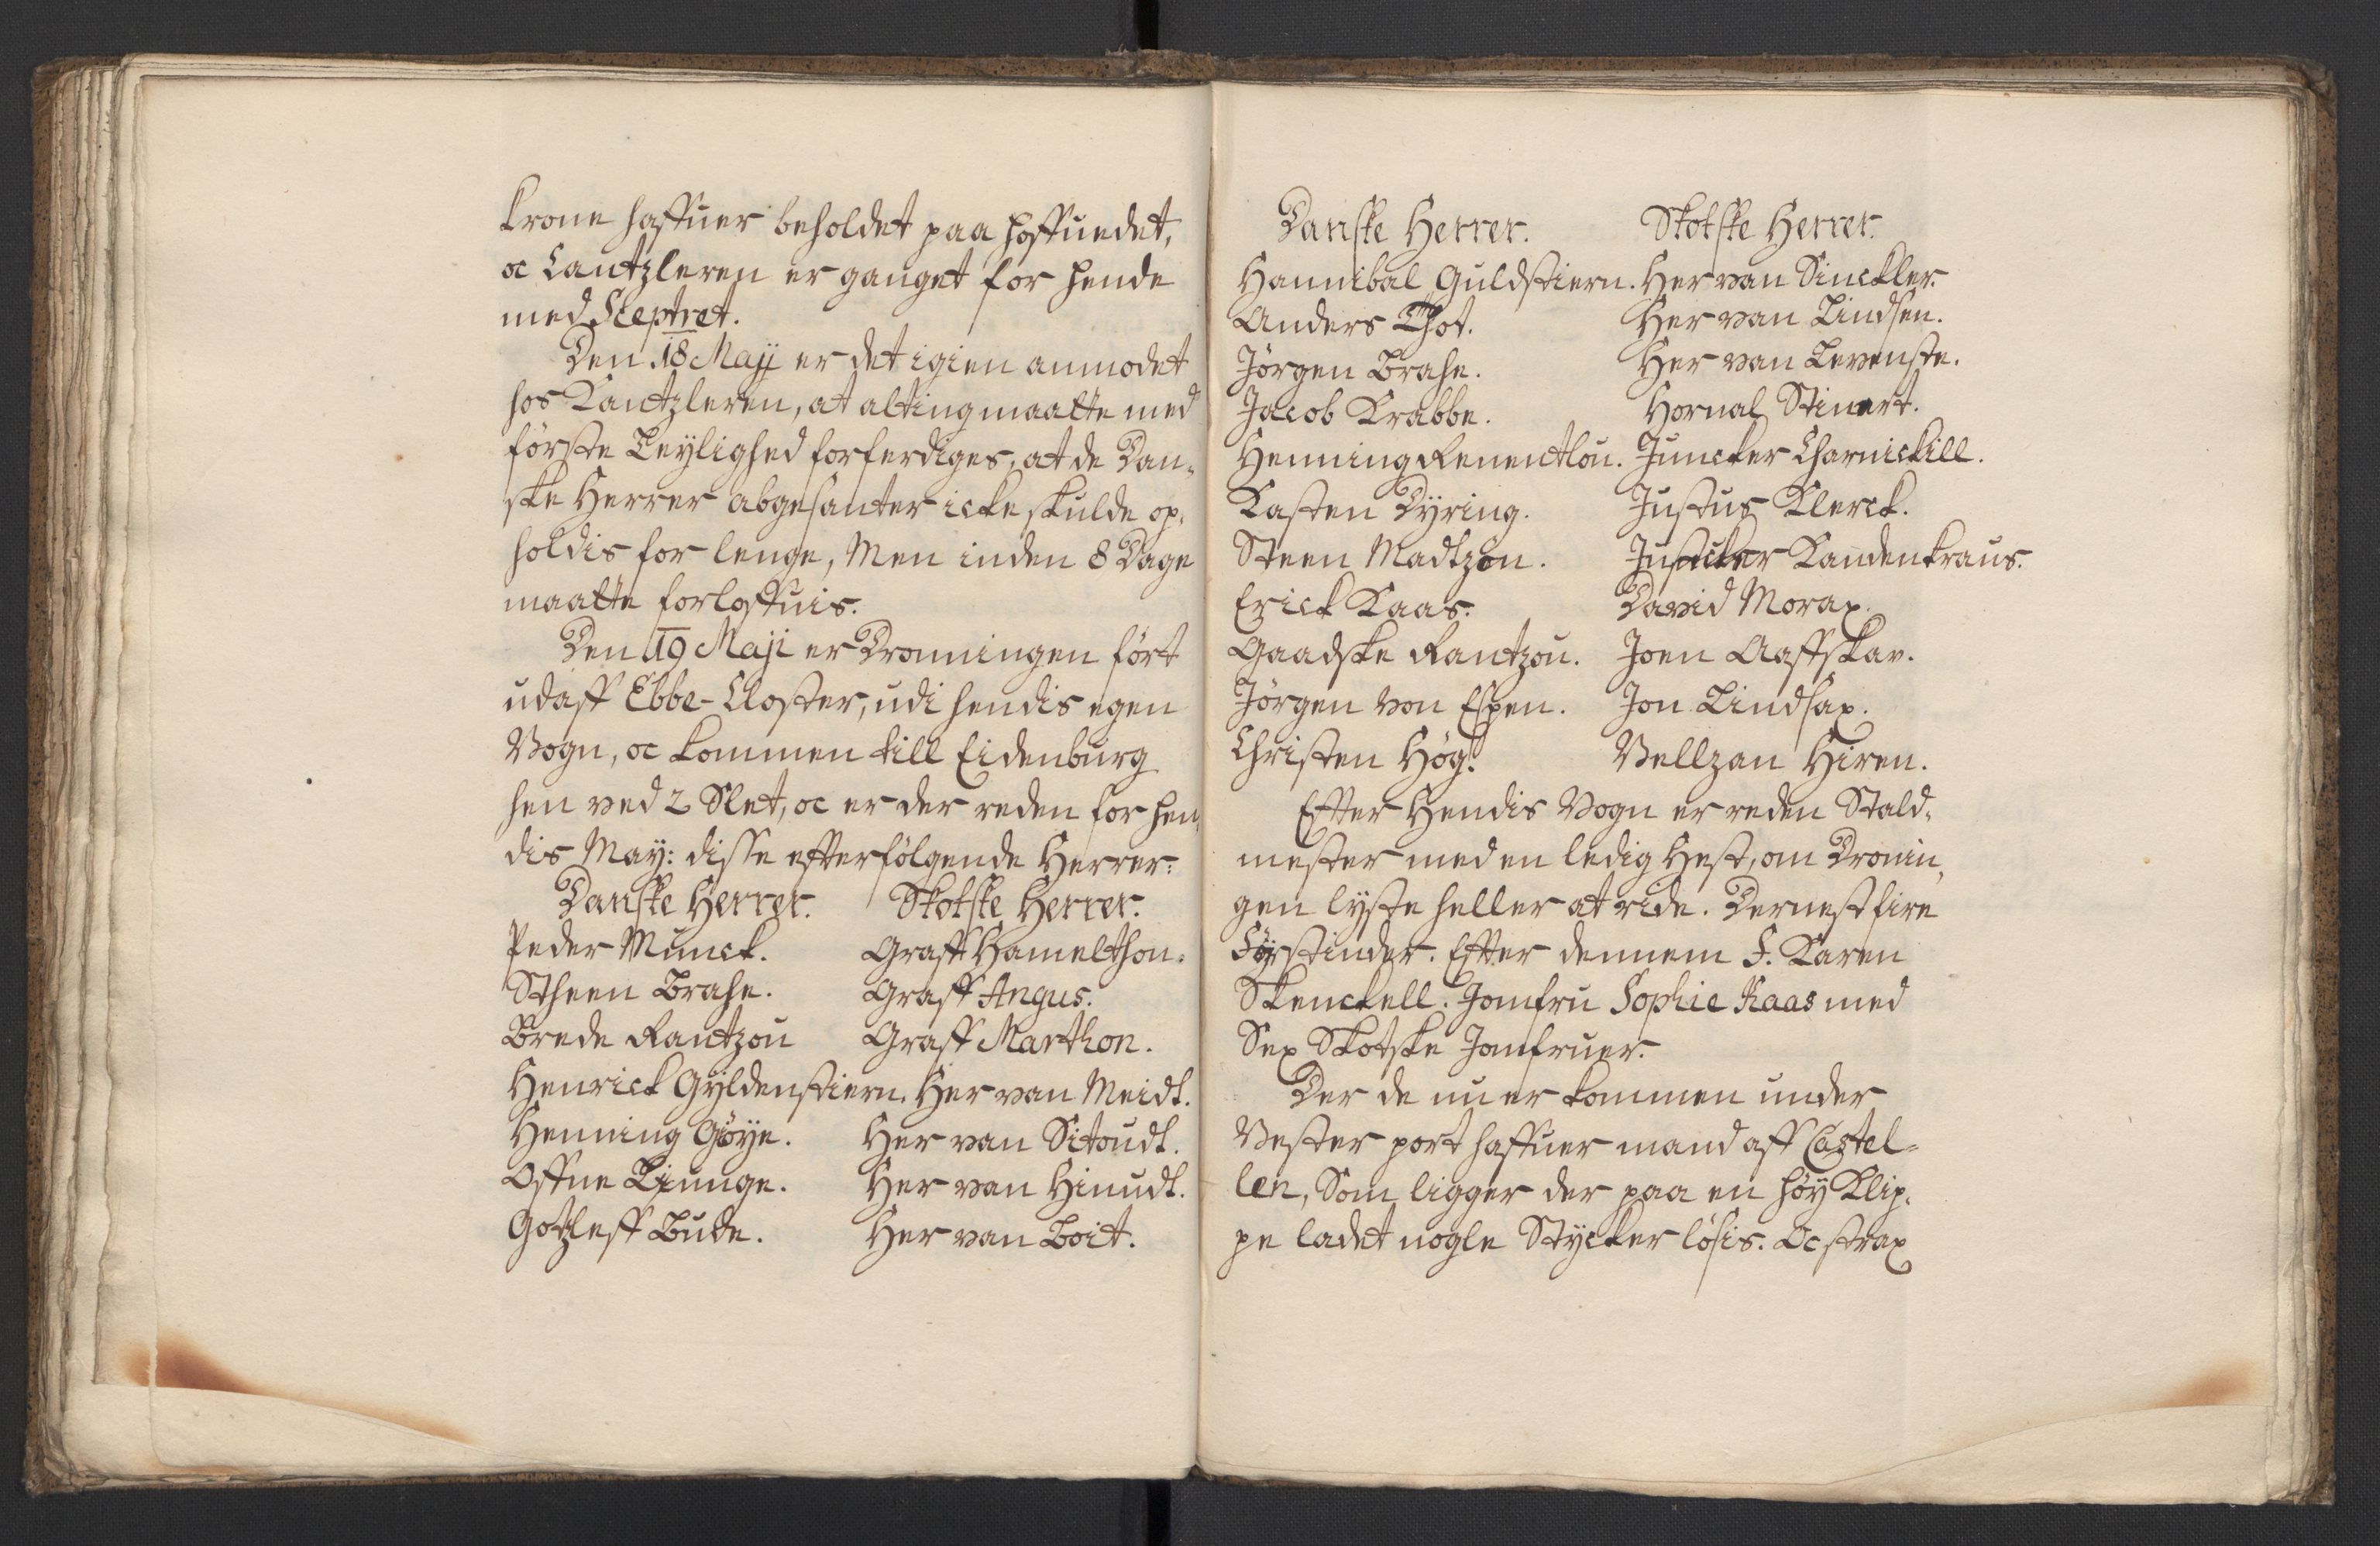 Krone haffuer beholdet paa hoffuedet,
oc Cantzleren er ganget for hende
med Sceptret.
Den 18 Maji er det igien anmodet
hos Cantzleren, at alting maatte med
förste Leylighed forferdiges, at de Dan-
ske Herrer abgesanter icke skulde op-
holdis for lenge, Men inden 8 Dage
maatte forloffuis.
Den 19 Maji er Dronningen fört
udaff Ebbe-Closter, udi hendis egen
Vogn, oc kommen till Eidenburg
hen ved 2 Slet, oc er der reden for hen-
dis May: disse efterfölgende Herrer:
Danske Herrer. Skotske Herrer.
Peder Munck. Graff Hamelthon.
Stheen Brahe. Graff Angus.
Brede Rantzou Graff Marthon.
Henrick Gyldenstiern. Her van Meidt.
Henning Göye. Her van Sitoudt.
Offue Liunge. Her van Hinudt.
Gotzleff Bude. Her van Boit.
Danske Herrer. Skotske Herrer.
Hannibal Guldstiern. Her van Sinckler.
Anders Thot. Her van Lindsen.
Jörgen Brahe. Her van Levenste.
Jacob Krabbe. Hornal Stinert.
Henning Reventlou. Juncker Charnickill.
Kasten Dyring. Justus Klerck.
Steen Madtzon. Kandenkraus.
Erick Kaas. David Morax.
Gaadske Rantzou. Joen Aaffskav.
Jörgen von Espen. Jon Lindsax.
Christen Hög. Vellzan Hiren.
Efter Hendis Vogn er reden Stald-
mester med en ledig Hest, om Dronin-
gen lyste heller at ride. Dernest fire
Förstinder. Efter dennem F. Karen
Skenckell. Jomfru Sophie Kaas med
Sex Skotske Jomfruer.
Der de nu er kommen under
Vester port haffuer mand aff Castel-
len, Som ligger der paa en höy Klip-
pe ladet nogle Stycker lösis. Oc strax